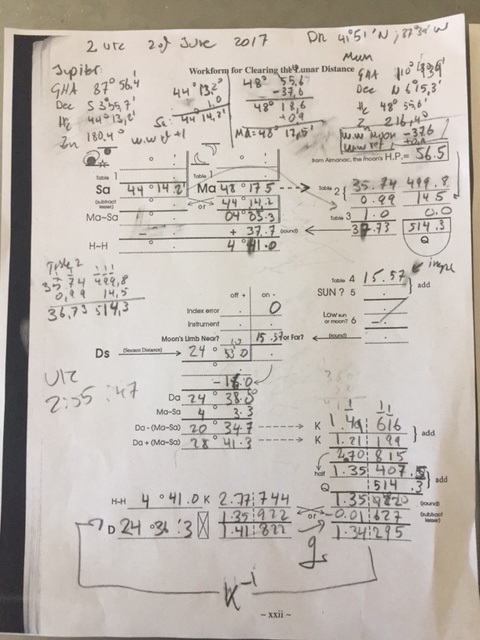 2 UTC 2 of June 2017 DR 41°51' N ; 87°39' W
Workform for Clearing the Lunar Distance
Jupiter
GHA 87° 56.4
Dec S 3°55,7'
Hc 44° 13,2'
Zn 180.4°
44° 13,2'
1,0
Sa: 44° 14,2'
w.w ref +1
48° 55,6'
- 37,6
48° 18,6
+0,9
Ma = 48° 17,5'
Moon
GHA
Dec N 6°15,3'
Hc 48° 55.6'
Z 216,4°
w.w Moon -37.6
from Almanac, the moon's H.P.= 56.5
Table 1
Table 1
Sa 44° 14.2'
Ma 48° 17.5
(subtract lesser)
or 44° 14.2
Ma–Sa 04° 03.3
+ 37.7 (round)
H–H 4° 41.0
Table 2 35.74 499.8
0.99 14.5
Table 3 1.0 0.0
37.73 514.3
Q
Table 2
35,74 499,8
0,99 14,5
36,73 514,3
UTC
2:55:47
off + on -
Index error 0
Instrument
Moon's Limb Near? 15.57 or Far?
Table 4 15.57
SUN ? 5
add
Low sun or moon? 6
(round)
Ds (Sextant Distance) 24° 53.0
Da 24° 38.0
Ma–Sa 4 3.3
Da - (Ma–Sa) 20° 34.7 K 1.49 616
Da + (Ma–Sa) 28° 41.3 K 1.21 199
add
2.70 815
half 1.35 407.5
Q 514.3
add
H–H 4° 41.0 K 2.77 744
1.35 922 (round)
1.35 922 or 0.01 627 (subtract lesser)
D 24° 36:3 1.41 822
1.34 295
K⁻¹
~ xxii ~